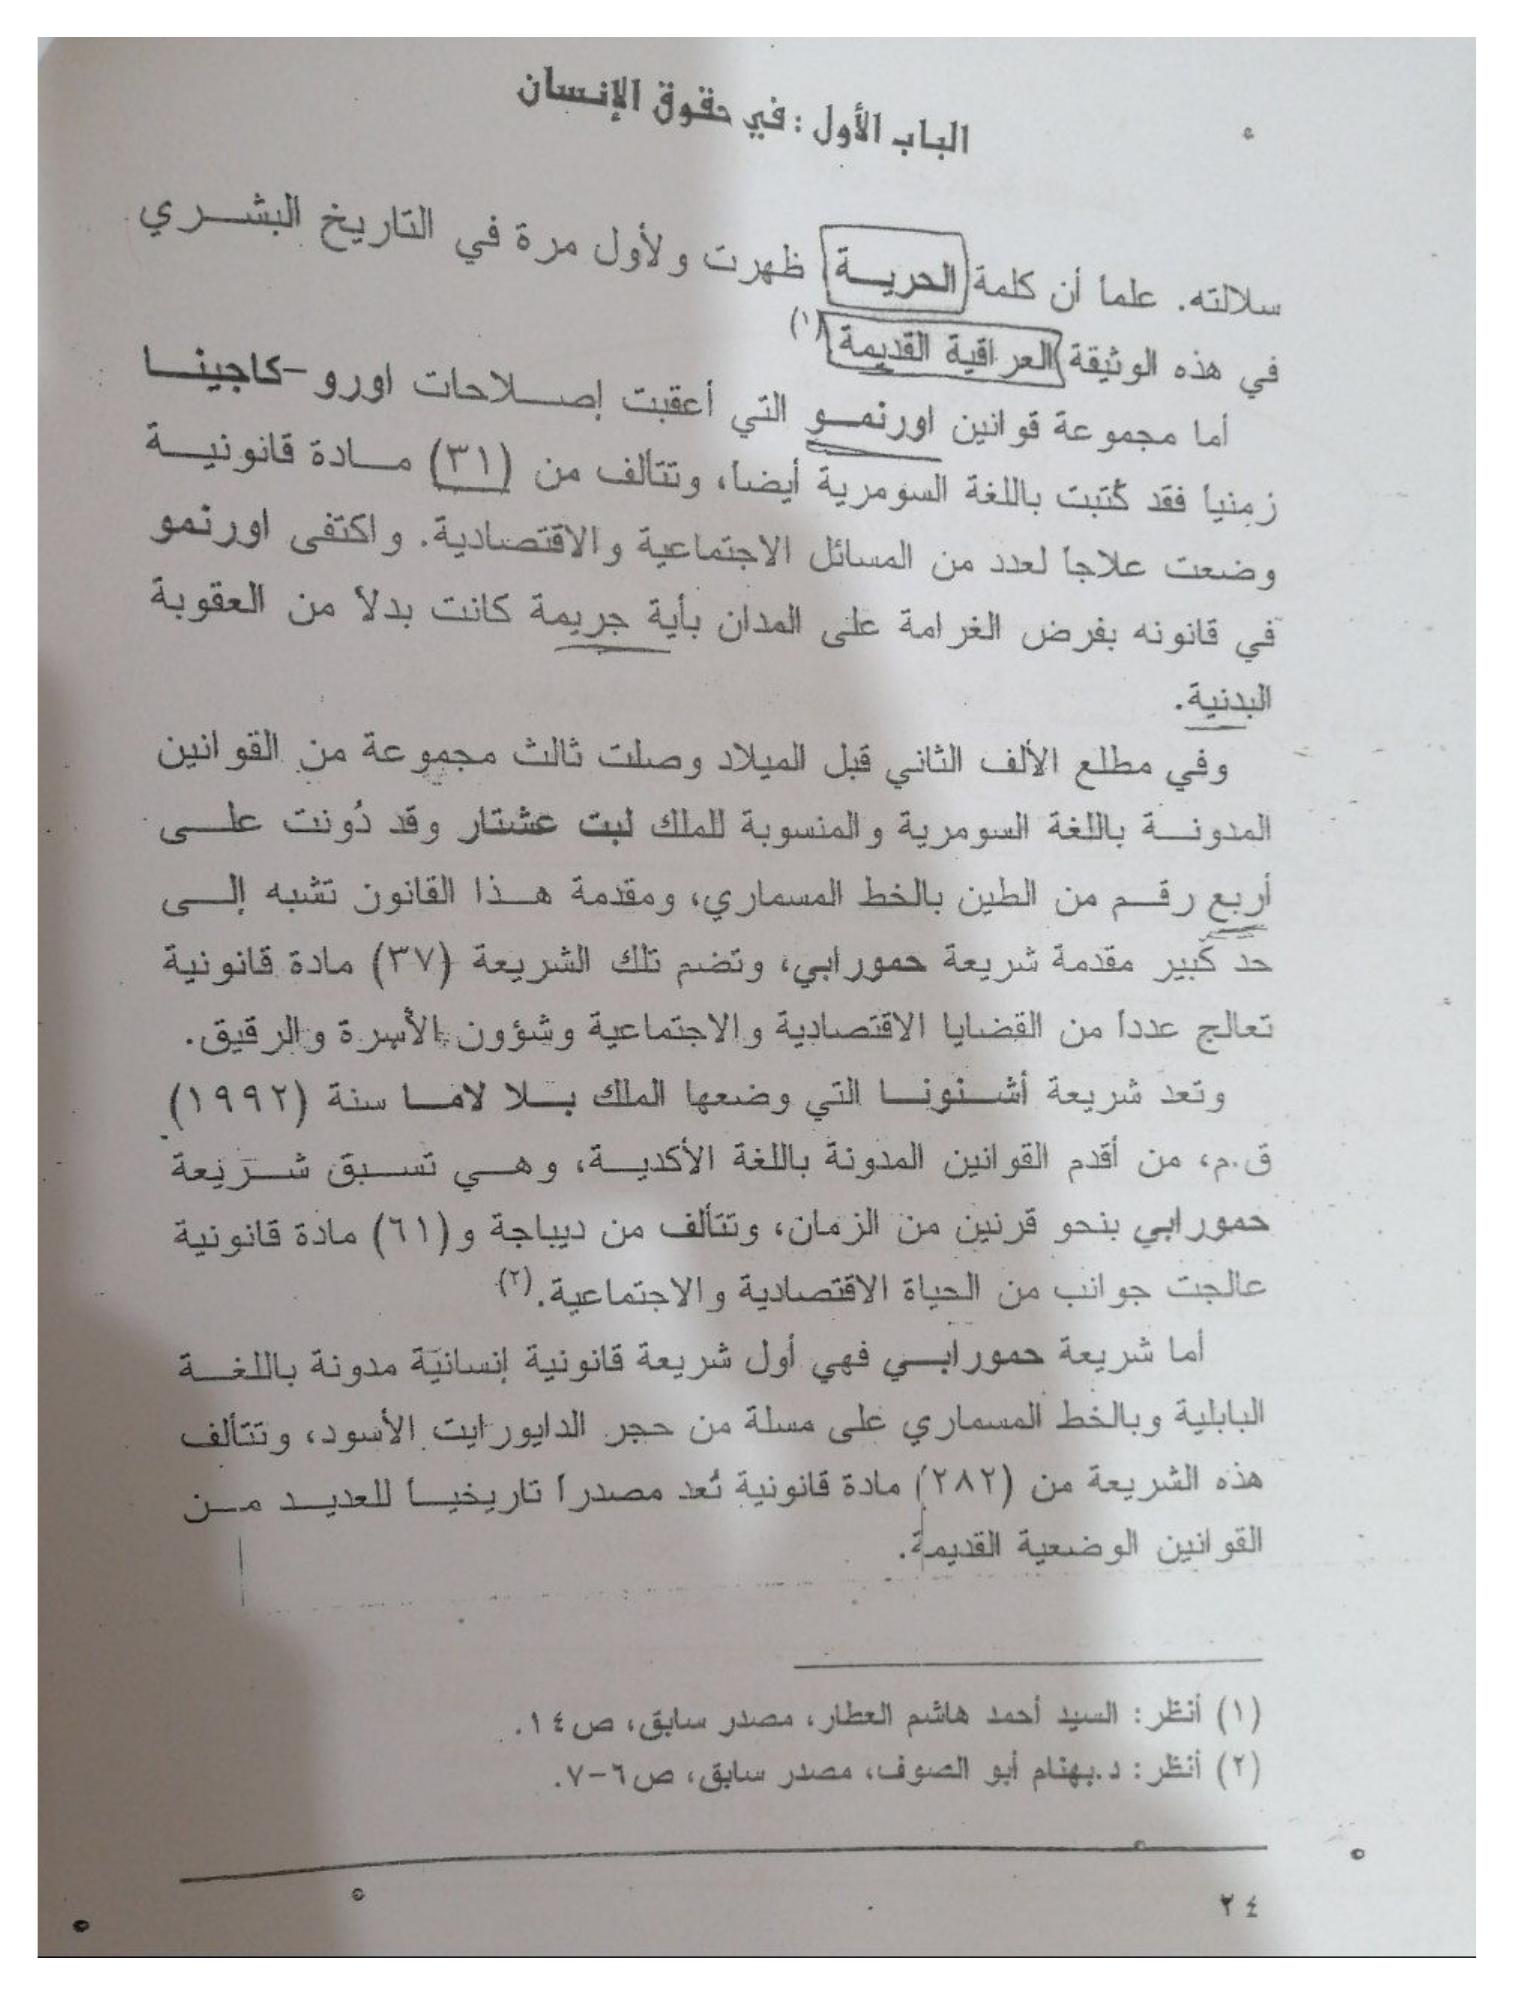 الباب الأول : في حقوق الإنسان
سلالته. علماً أن كلمة الحريــة ظهرت ولأول مرة في التاريخ البشــري
في هذه الوثيقة العراقية القديمة (١)
أما مجموعة قوانين اورنمــو التي أعقبت إصــلاحات اورو-كاجينــا
زمنياً فقد كُتبت باللغة السومرية أيضاً، وتتألف من (٣١) مــادة قانونيــة
وضعت علاجاً لعدد من المسائل الاجتماعية والاقتصادية. واكتفى اورنمو
في قانونه بفرض الغرامة على المدان بأية جريمة كانت بدلاً من العقوبة
البدنية.
وفي مطلع الألف الثاني قبل الميلاد وصلت ثالث مجموعة من القوانين
المدونــة باللغة السومرية والمنسوبة للملك لبت عشتار وقد دُونت علــى
أربع رقــم من الطين بالخط المسماري، ومقدمة هــذا القانون تشبه إلــى
حد كبير مقدمة شريعة حمورابي، وتضم تلك الشريعة (٣٧) مادة قانونية
تعالج عدداً من القضايا الاقتصادية والاجتماعية وشؤون الأسرة والرقيق.
وتعد شريعة أشــنونــا التي وضعها الملك بــلا لامــا سنة (١٩٩٢)
ق.م، من أقدم القوانين المدونة باللغة الأكديــة، وهــي تســبق شــريعة
حمورابي بنحو قرنين من الزمان، وتتألف من ديباجة و(٦١) مادة قانونية
عالجت جوانب من الحياة الاقتصادية والاجتماعية.(٢)
أما شريعة حمورابــي فهي أول شريعة قانونية إنسانية مدونة باللغــة
البابلية وبالخط المسماري على مسلة من حجر الدايورايت الأسود، وتتألف
هذه الشريعة من (٢٨٢) مادة قانونية تُعد مصدراً تاريخيــاً للعديــد مــن
القوانين الوضعية القديمة.
(١) أنظر: السيد أحمد هاشم العطار، مصدر سابق، ص١٤.
(٢) أنظر: د.بهنام أبو الصوف، مصدر سابق، ص٦-٧.
٢٤